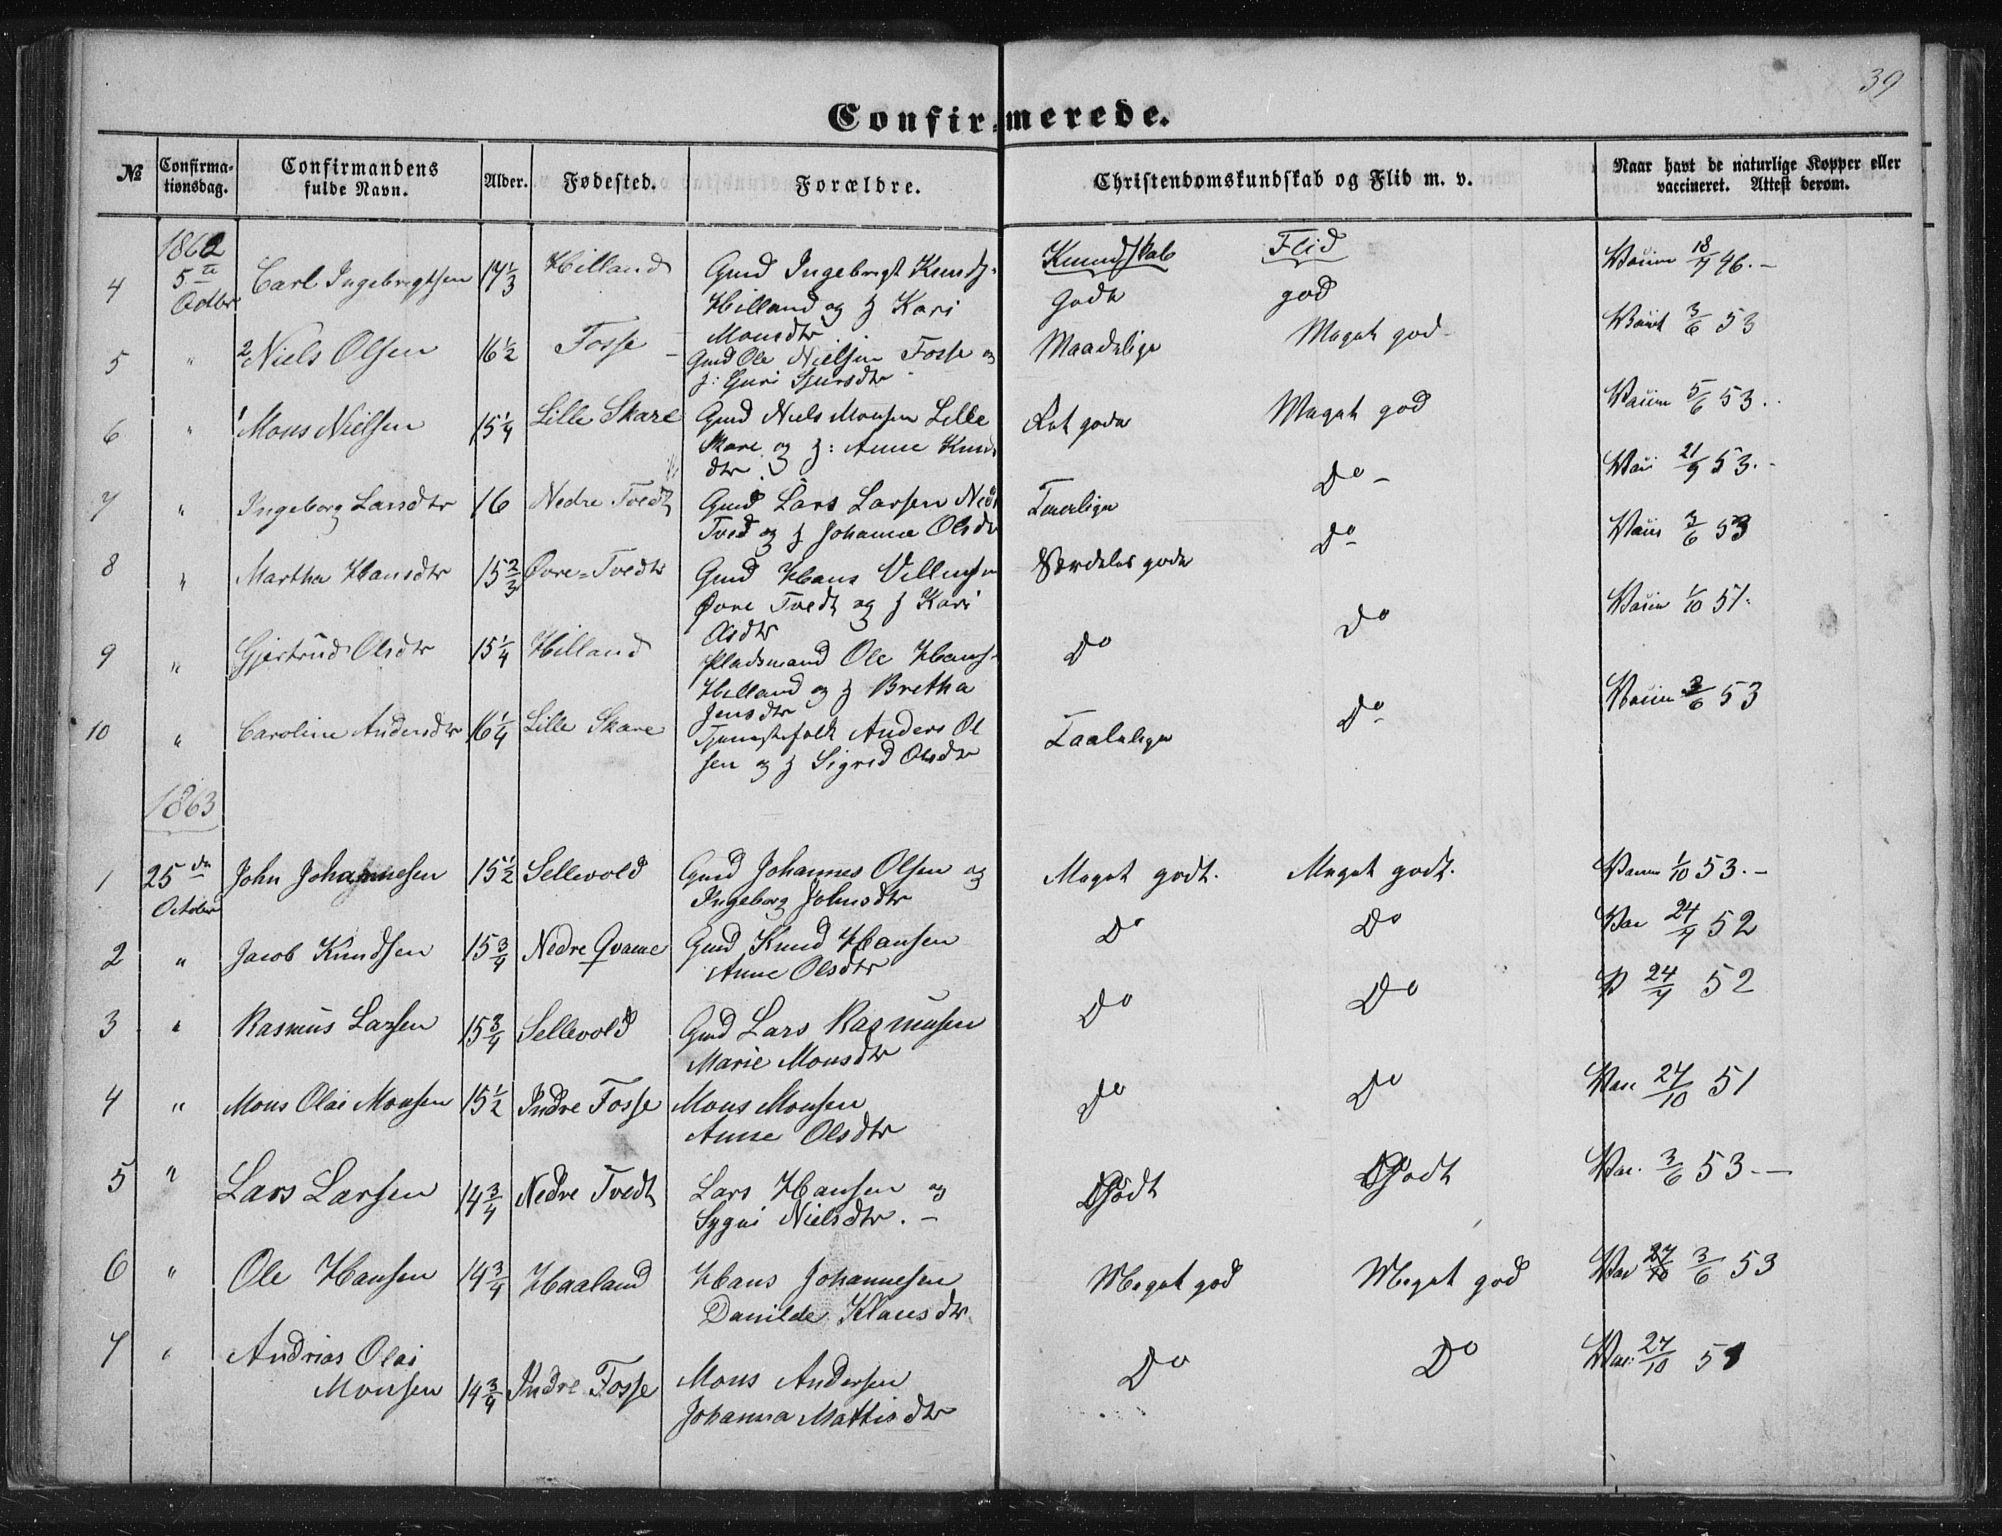 39
Confirmerede.
№ Confirmationsdag. Confirmandens fulde Navn. Alder. Fødested. Forældre. Christendomskundskab og Flid m. v. Naar havt de naturlige Kopper eller vaccineret. Attest derom.
1862
Kundskab Flid
4 5te Octbr Carl Ingebrigtsen 17 1/3 Hilland Gmd Ingebrigt Knuds.
Hilland og J Kari
Monsdtr
Gode god 18/7 46. –
5 " 2 Niels Olsen 16 1/2 Fosse – Gmd Ole Nielsen Fosse og
J: Guri Sjursdtr
Maadelige Meget god – 3/6 53
6 " 1 Mons Nielsen 15 1/4 Lille Skare Gmd Niels Monsen Lille
Skare og J: Anne Knuds
dtr
Ret gode Meget god 5/6 53.
7 " Ingeborg Larsdtr 16 Nedre Tvedt Gmd Lars Larsen Nedr
Tved og J Johanna Olsdtr
Do – 21/9 53. –
8 " Martha Hansdtr 15 2/3 Øvre=Tvedt Gmd Hans Villumsen
Øvre Tvedt og J Kari
Olsdtr
Særdeles gode Do 3/6 53
9 " Gjertrud Olsdtr 15 1/4 Hilland Pladsmand Ole Hans-
Hilland og J Bretha
Jensdtr
Do Do 1/10 51.
10 " Caroline Andersdtr 16 1/4 Lille Skare Tjenestefolk Anders Ol
sen og J Sigrid Olsdtr
Taalelige Do 3/6 53
1863
1 25de October John Johannesen 15 1/2 Sellevold Gmd Johannes Olsen og
Ingeborg Johnsdtr
Meget godt. Meget godt. 1/10 53. –
2 " Jacob Knudsen 15 3/4 Nedre Qvame Gmd Knud Hansen
Anne Olsdtr
Do Do Vac 24/7 52
3 " Rasmus Larsen 15 3/4 Sellevold Gmd Lars Rasmusen
Marie Monsdtr
Do Do V 24/7 52
4 " Mons Olai Monsen 15 1/2 Indre Fosse Mons Monsen
Anne Olsdtr
Do Do Vac 27/10 51
5 " Lars Larsen 14 3/4 Nedre Tvedt Lars Hansen og
Sygni Nielsdtr. –
Godt Godt Vac. 3/6 53. –
6 " Ole Hansen 14 3/4 Haaland Hans Johannesen
Danilde Klausdtr.
Meget god Meget god Vac 27/10 3/6 53
7 " Andrias Olai
Monsen 14 3/4 Indre Fosse Mons Andersen
Johanna Mattisdtr
Do Do Vac. 27/10 51